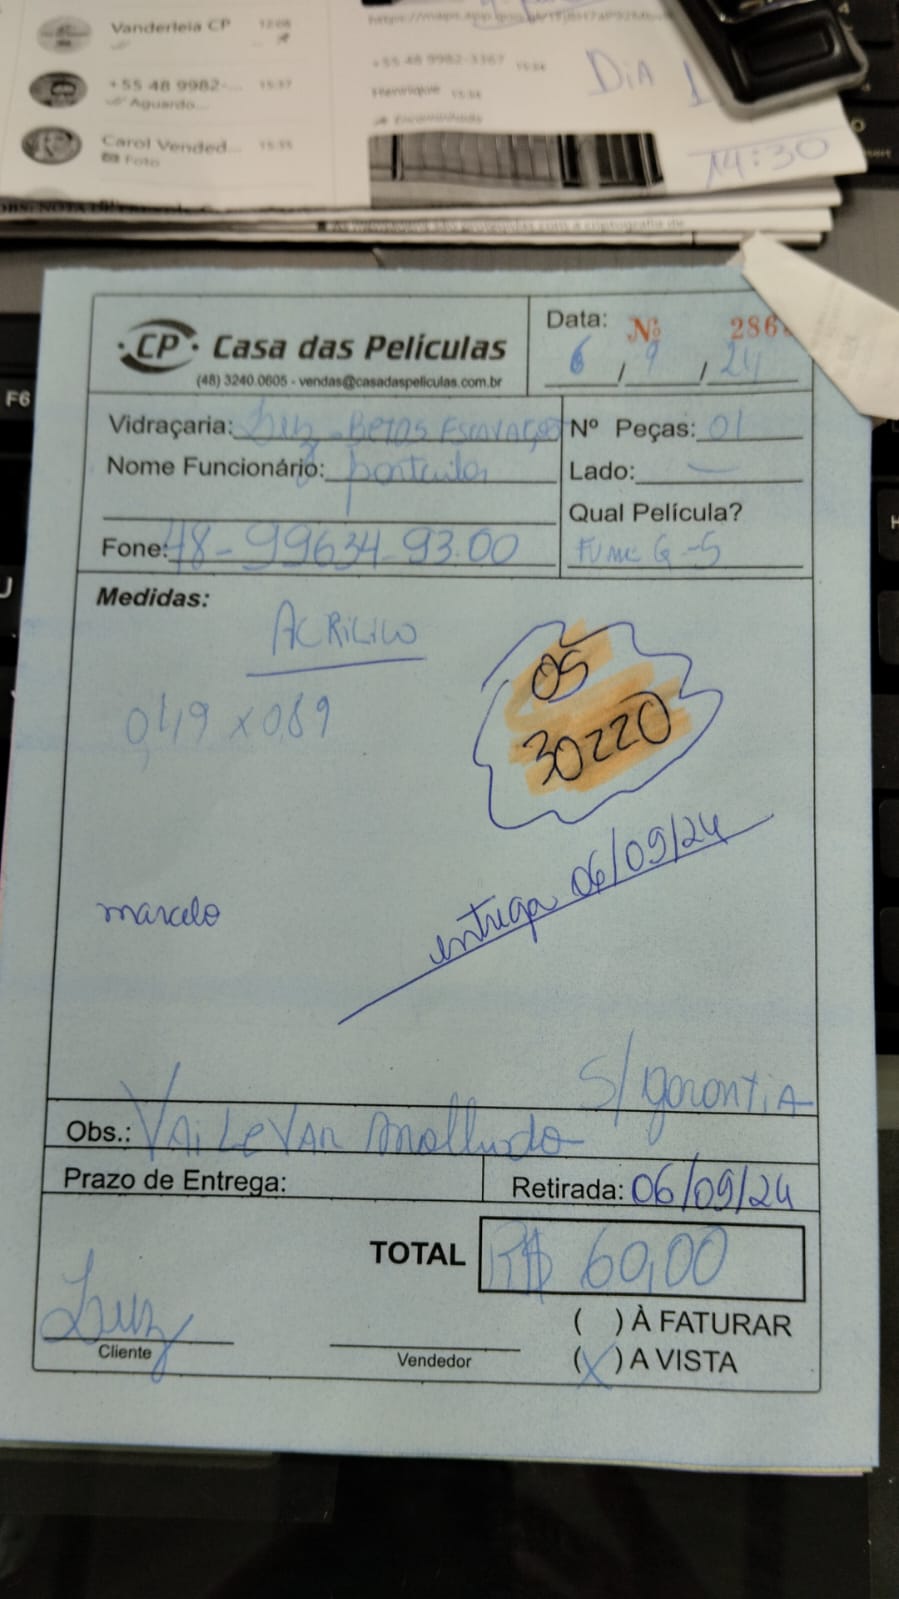 Vanderleia CP 12:08
+55 48 9982-... 15:37
Aguardo...
Carol Vended... 15:35
Foto
+55 48 9982-3367 15:34
Henrique 15:34
Encaminhada
DiA
14:30
CP Casa das Películas
(48) 3240.0605 - vendas@casadaspeliculas.com.br
Data: Nº 286
6 / 9 / 24
Vidraçaria: Luiz - BETOS ESCAVAÇÕES
Nº Peças: 01
Nome Funcionário: particular
Lado: —
Qual Película?
Fone: 48-99634-93.00
Fume G-5
Medidas:
ACRILICO
OS
30220
0,49 x 0,89
entrega 06/09/24
marcelo
S/garantiA
Obs.: VAi LeVAR molhado
Prazo de Entrega:
Retirada: 06/09/24
TOTAL R$ 60,00
( ) À FATURAR
Luiz
Cliente
Vendedor
(X) A VISTA
F6